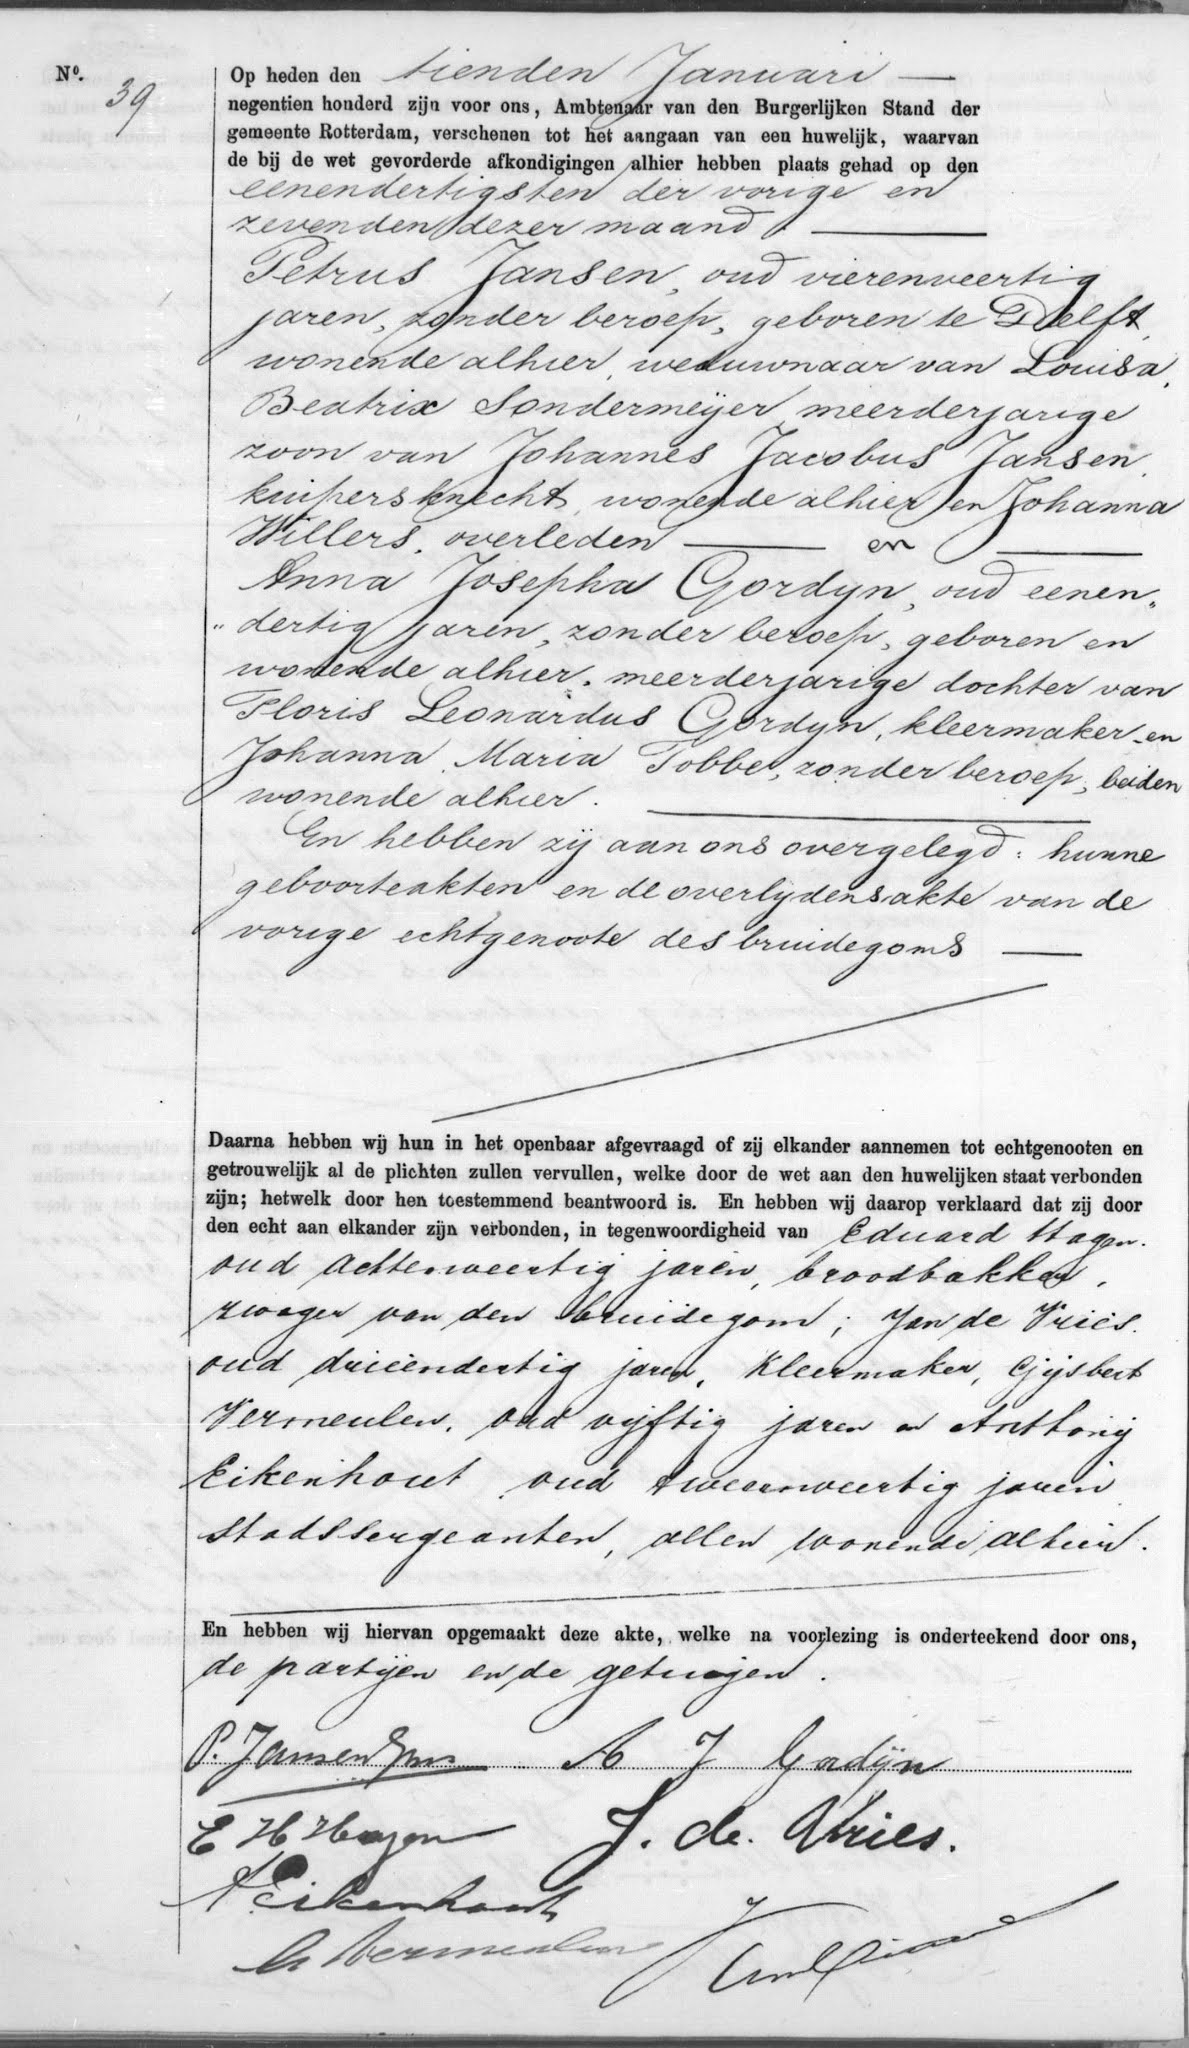 Nº. 39
Op heden den tienden Januari
negentien honderd zijn voor ons, Ambtenaar van den Burgerlijken Stand der
gemeente Rotterdam, verschenen tot het aangaan van een huwelijk, waarvan
de bij de wet gevorderde afkondigingen alhier hebben plaats gehad op den
eenendertigsten der vorige en
zevenden dezer maand.
Petrus Jansen, oud vierenveertig
jaren, zonder beroep, geboren te Delft,
wonende alhier, weduwnaar van Louisa
Beatrix Sondermeijer, meerderjarige
zoon van Johannes Jacobus Jansen,
kuipersknecht, wonende alhier en Johanna
Willers, overleden en
Anna Josepha Gordyn, oud eenen„
„dertig jaren, zonder beroep, geboren en
wonende alhier, meerderjarige dochter van
Floris Leonardus Gordyn, kleermaker en
Johanna Maria Tobbe, zonder beroep, beiden
wonende alhier.
En hebben zij aan ons overgelegd: hunne
geboorteakten en de overlijdensakte van de
vorige echtgenoote des bruidegoms
Daarna hebben wij hun in het openbaar afgevraagd of zij elkander aannemen tot echtgenooten en
getrouwelijk al de plichten zullen vervullen, welke door de wet aan den huwelijken staat verbonden
zijn; hetwelk door hen toestemmend beantwoord is. En hebben wij daarop verklaard dat zij door
den echt aan elkander zijn verbonden, in tegenwoordigheid van Eduard Hagen.
oud achtenveertig jaren, broodbakker,
zwager van den bruidegom; Jan de Vries.
oud drieëndertig jaren, kleermaker, Gijsbert
Vermeulen, oud vijftig jaren en Anthonij
Eikenhout oud tweeenveertig jaren
stadssergeanten, allen wonende alhier.
En hebben wij hiervan opgemaakt deze akte, welke na voorlezing is onderteekend door ons,
de partijen en de getuigen.
P. Jansen A J Gordijn
E H Hagen J. de Vries.
A Eikenhout
G Vermeulen